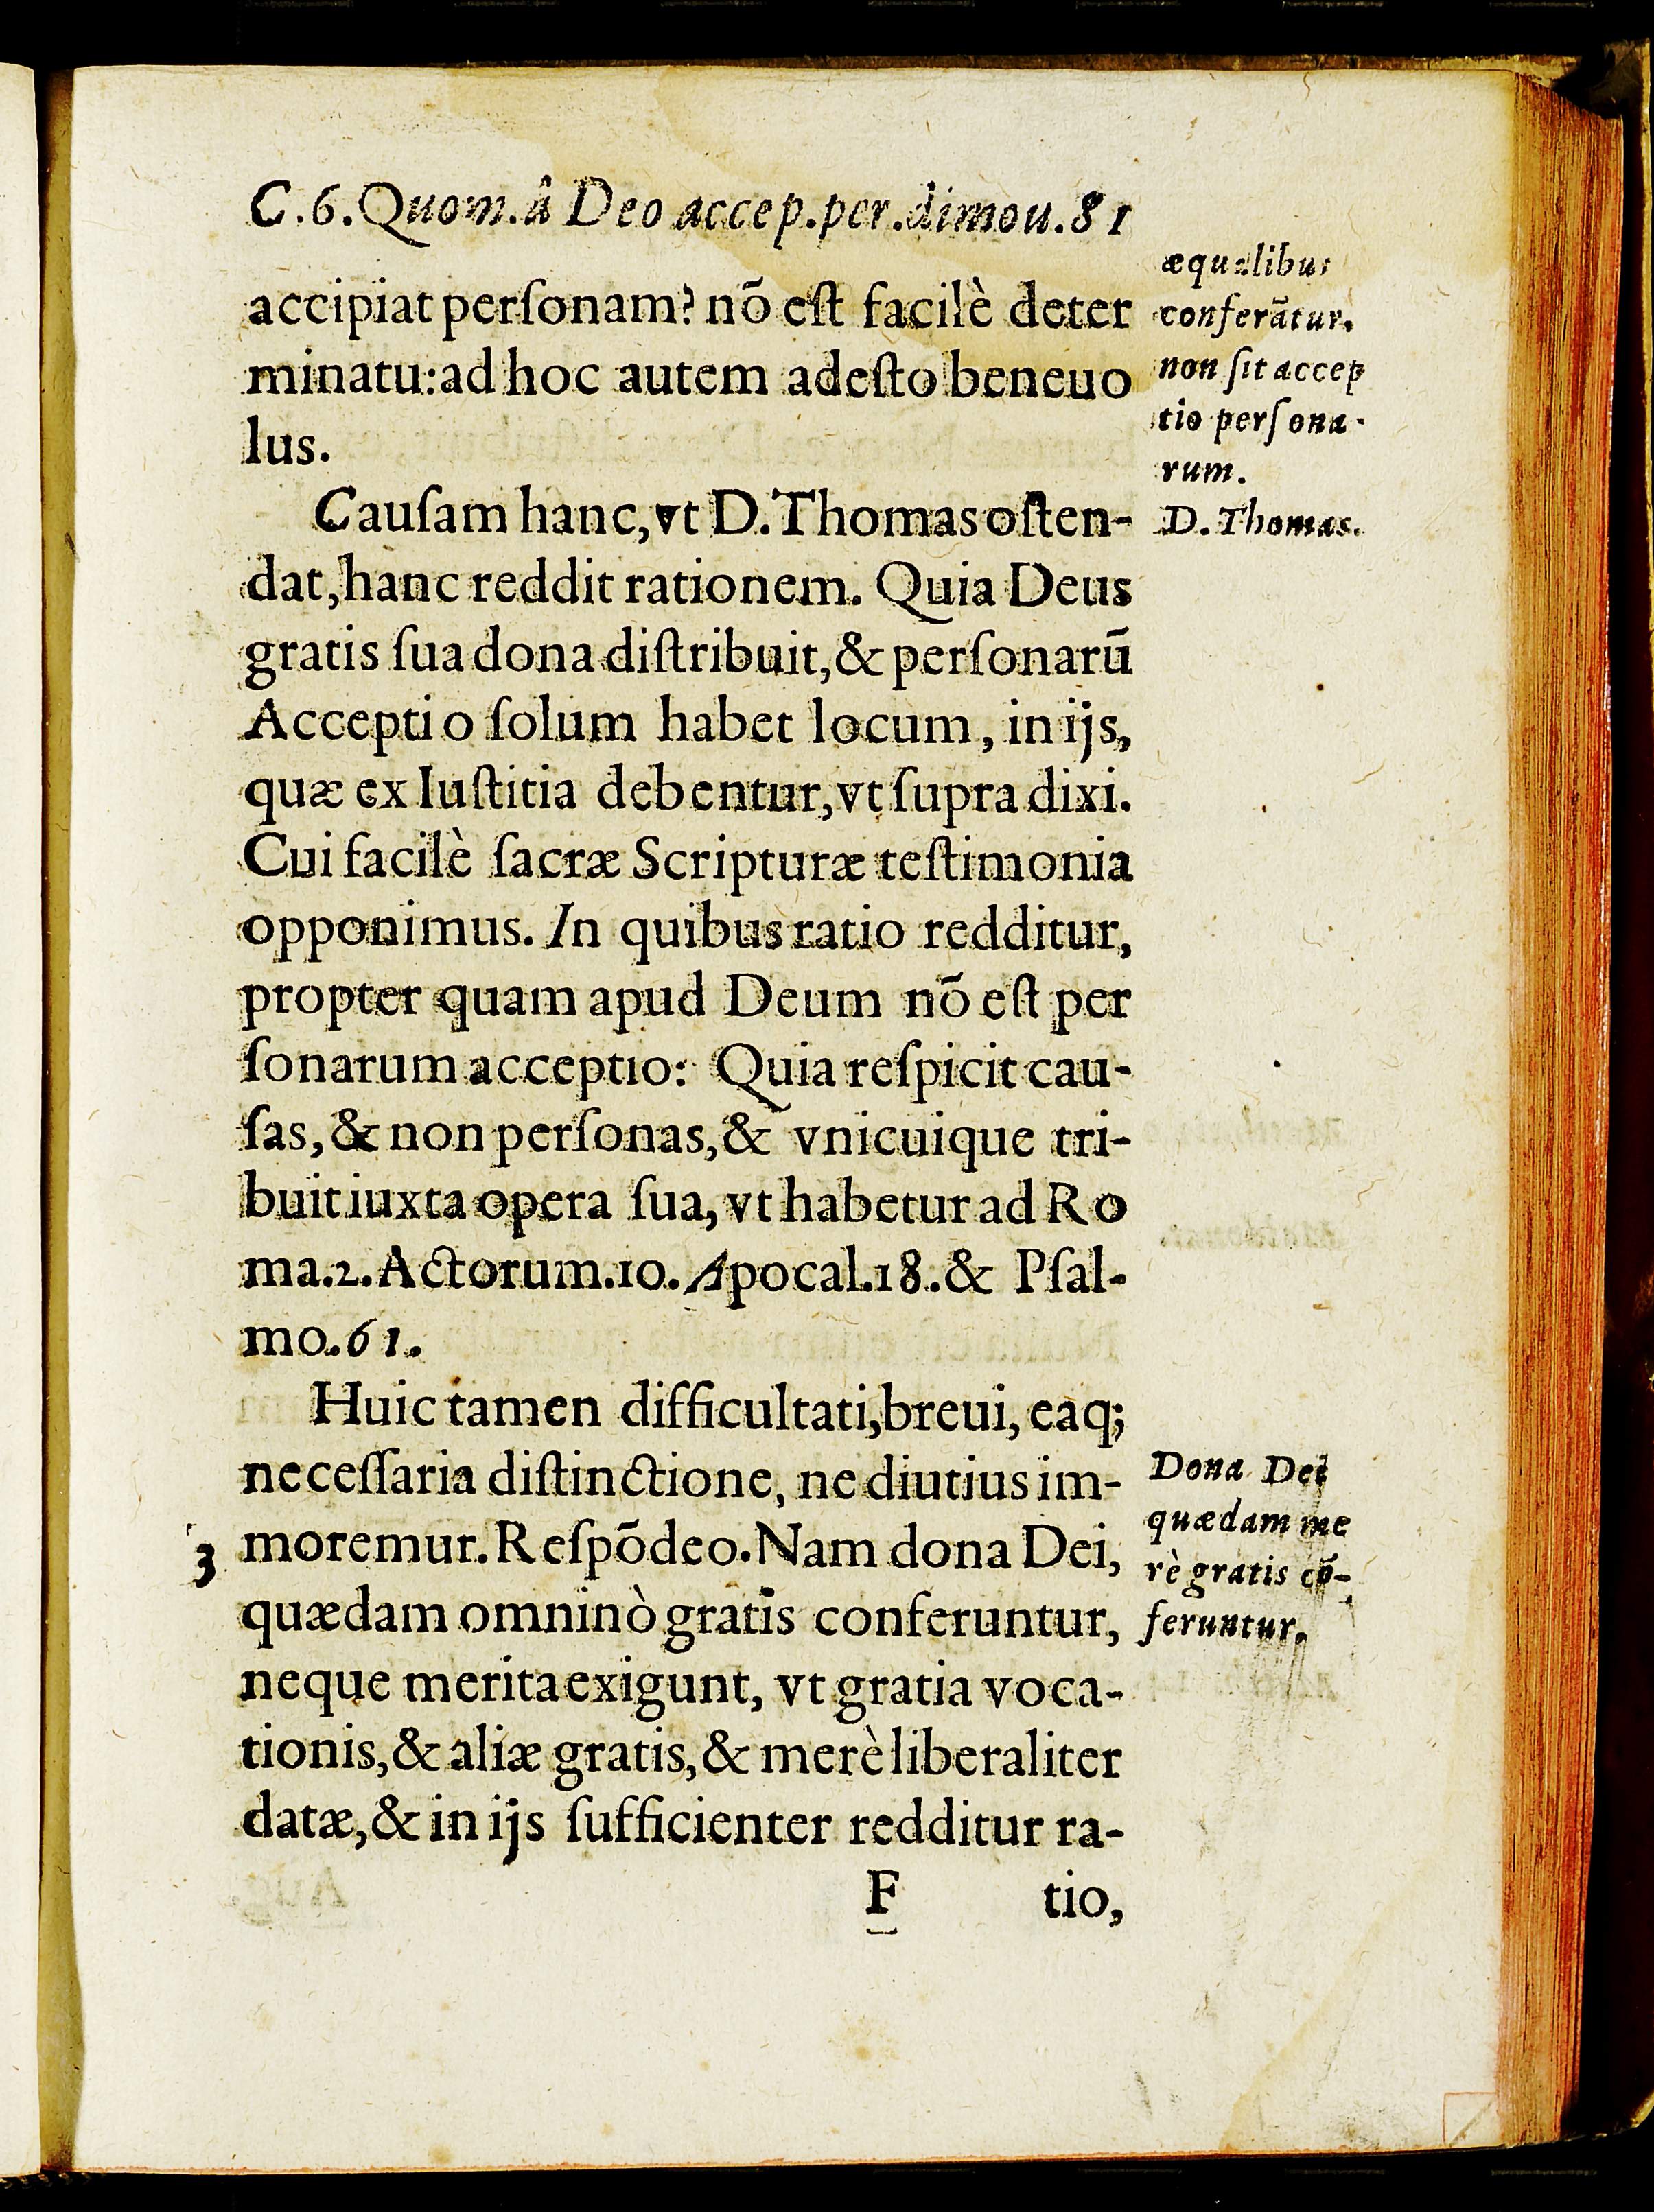 C.6.Quom.â Deo accep.per.dimou.81
accipiat perſonam? nō eſt facilè deter
minatu:ad hoc autem adeſto beneuo
lus.
Cauſam hanc,vt D.Thomas oſten-
dat,hanc reddit rationem. Quia Deus
gratis ſua dona diſtribuit,& perſonarū
Acceptio ſolum habet locum, in ijs,
quæ ex Iuſtitia debentur,vt ſupra dixi.
Cui facilè ſacræ Scripturæ teſtimonia
opponimus. In quibus ratio redditur,
propter quam apud Deum nō eſt per
ſonarum acceptio: Quia reſpicit cau-
ſas,& non perſonas,& vnicuique tri-
buit iuxta opera ſua, vt habetur ad Ro
ma.2.Actorum.10.Apocal.18.& Pſal-
mo.61.
Huic tamen difficultati,breui, eaq;
neceſſaria diſtinctione, ne diutius im-
3 moremur.Reſpōdeo.Nam dona Dei,
quædam omninò gratis conferuntur,
neque merita exigunt, vt gratia voca-
tionis,& aliæ gratis,& merè liberaliter
datæ,& in ijs ſufficienter redditur ra-
F tio,
æqualibus
conferātur.
non ſit accep
tio perſona-
rum.
D. Thomas.
Dona Dei
quædam me
rè gratis cō-
feruntur.